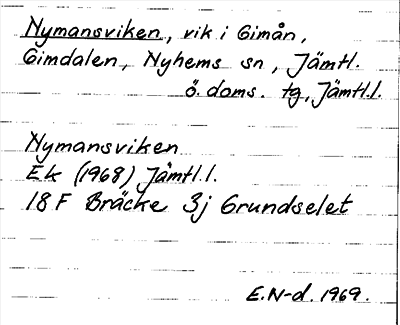 Nymansviken, vik i Gimån,
Gimdalen, Nyhems sn, Jämtl.
ö. doms. tg, Jämtl.l.
Nymansviken
Ek (1968) Jämtl.l.
18 F Bräcke 3j Grundselet
E.N-d. 1969.